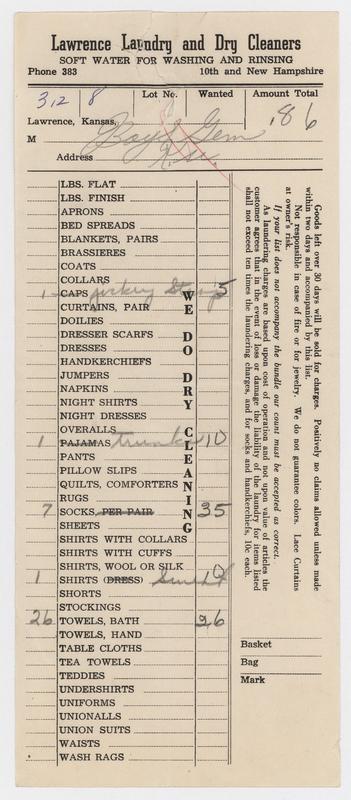 Lawrence Laundry and Dry Cleaners
SOFT WATER FOR WASHING AND RINSING
Phone 383 10th and New Hampshire
312 8 Lot No. Wanted Amount Total
.86
Lawrence, Kansas,
M Boys Gem
Address K.S.U.
LBS. FLAT
LBS. FINISH
APRONS
BED SPREADS
BLANKETS, PAIRS
BRASSIERES
COATS
COLLARS
1 CAPS jockey Strap 5
CURTAINS, PAIR
DOILIES
DRESSER SCARFS
DRESSES
HANDKERCHIEFS
JUMPERS
NAPKINS
NIGHT SHIRTS
NIGHT DRESSES
OVERALLS
1 PAJAMAS trunks 10
PANTS
PILLOW SLIPS
QUILTS, COMFORTERS
RUGS
7 SOCKS, PER PAIR 35
SHEETS
SHIRTS WITH COLLARS
SHIRTS WITH CUFFS
SHIRTS, WOOL OR SILK
1 SHIRTS (DRESS) Sweat 10
SHORTS
STOCKINGS
26 TOWELS, BATH 26
TOWELS, HAND
TABLE CLOTHS
TEA TOWELS
TEDDIES
UNDERSHIRTS
UNIFORMS
UNIONALLS
UNION SUITS
WAISTS
WASH RAGS
WE DO DRY CLEANING
Goods left over 30 days will be sold for charges. Positively no claims allowed unless made
within two days and accompanied by this list.
Not responsible in case of fire or for jewelry. We do not guarantee colors. Lace Curtains
at owner's risk.
If your list does not accompany the bundle our count must be accepted as correct.
As laundering charges are based upon cost of operation and not upon value of articles the
customer agrees that in the event of loss or damage the liability of the laundry for items listed
shall not exceed ten times the laundering charges, and for socks and handkerchiefs, 10c each.
Basket
Bag
Mark